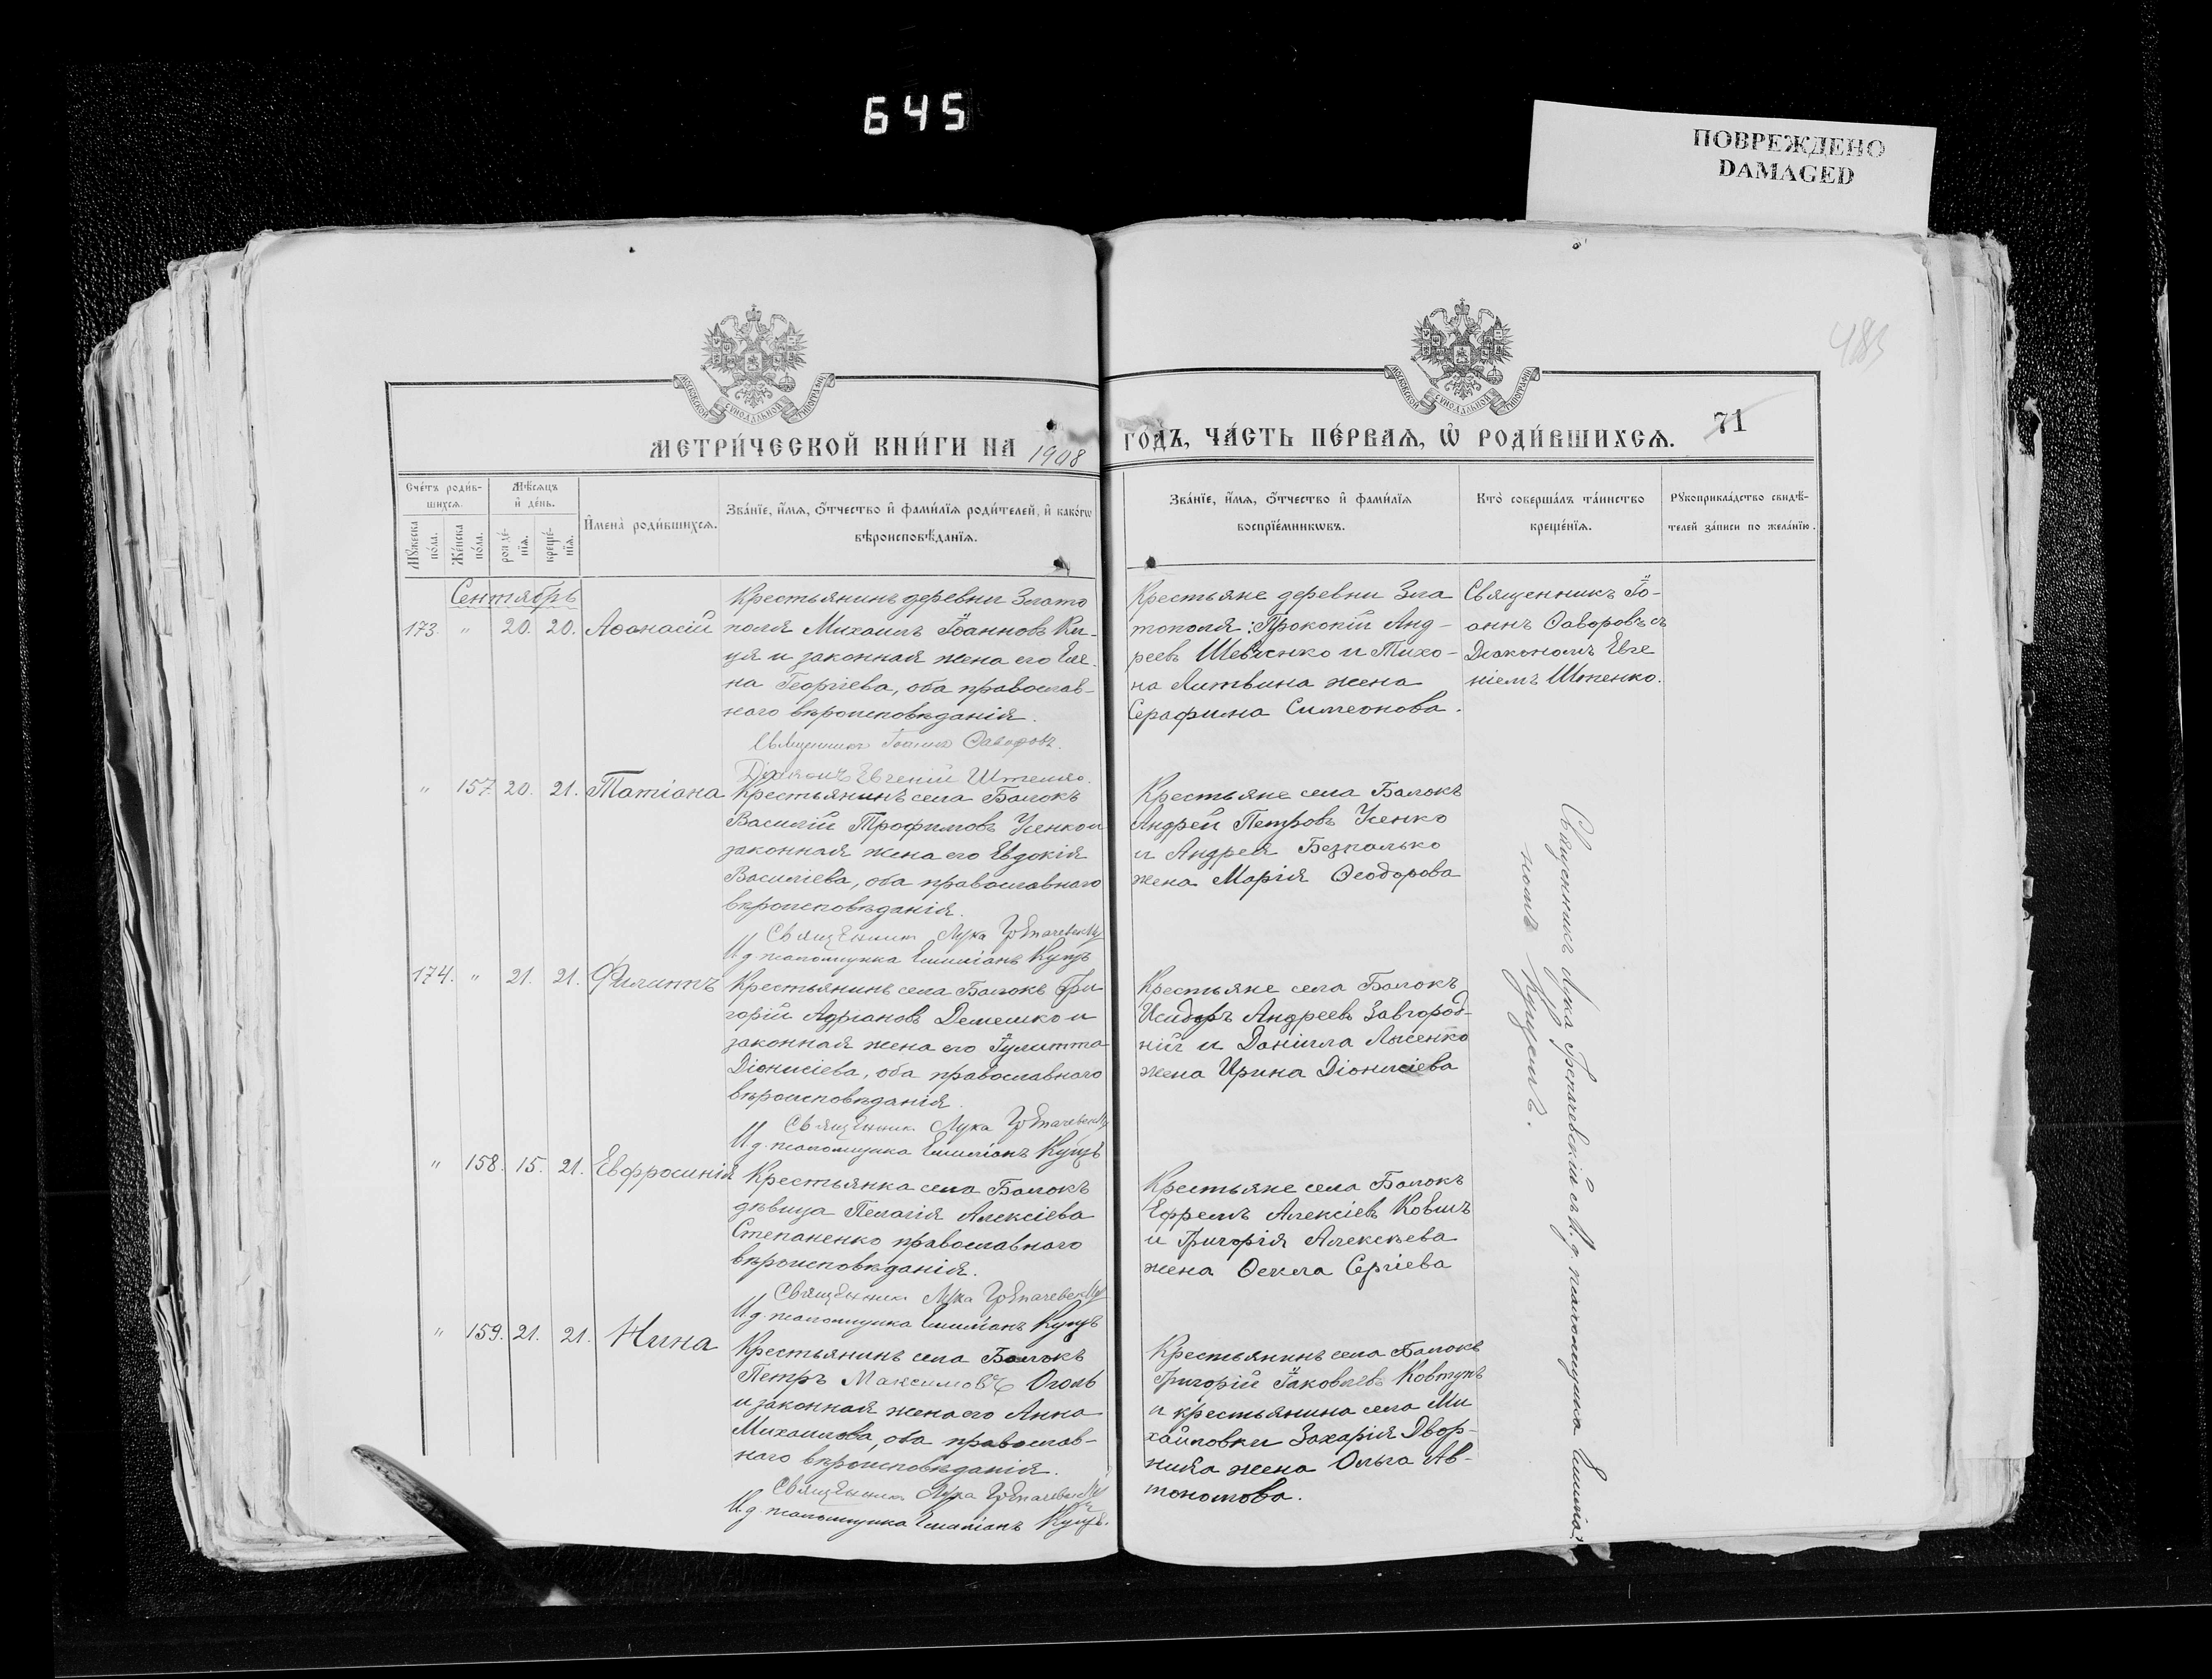 645
ПОВРЕЖДЕНО
DAMAGED
483
МОСКОВСКОЙ СѴНОДАЛЬНОЙ ТИПОГРАФІИ
МОСКОВСКОЙ СѴНОДАЛЬНОЙ ТИПОГРАФІИ
МЕТРИ́ЧЕСКОЙ КНИ́ГИ НА 1908
ГО́ДЪ, ЧА́СТЬ ПЕ́РВАѦ, Ѡ҆ РОДИ́ВШИХСѦ. 71
Сче́тъ роди́в-
шихсѧ.
Мѣ́сѧцъ
и҆ де́нь.
Мꙋ́жеска
по́ла.
Же́нска
по́ла.
рожде́-
нїѧ.
креще́-
нїѧ.
И҆мена̀ роди́вшихсѧ.
Зва́нїе, и҆́мѧ, ѻ҆́тчество и҆ фами́лїѧ роди́телей, и҆ како́гѡ
вѣроисповѣ́данїѧ.
Зва́нїе, и҆́мѧ, ѻ҆́тчество и҆ фами́лїѧ
воспрїе́мникѡвъ.
Кто̀ соверша́лъ та́инство
креще́нїѧ.
Рꙋкоприкла́дство свидѣ́-
телей за́писи по жела́нїю.
Сентябрь
173. " 20. 20. Аѳанасій
Крестьянинъ деревни Злато
поля Михаилъ Іоанновъ Ки-
ця и законная жена его Еле-
на Георгіева, оба православ-
наго вѣроисповѣданія.
Священникъ Іоаннъ Ѳаворовъ.
Діаконъ Евгеній Штенко.
Крестьяне деревни Зла
тополя: Прокопій Анд-
реевъ Шевченко и Тихо-
на Литвина жена
Серафима Симеонова.
Священникъ Іо-
аннъ Ѳаворовъ съ
Діакономъ Евге
ніемъ Штенко.
" 157. 20. 21. Татіана
Крестьянинъ села Балокъ
Василій Трофимовъ Усенко и
законная жена его Евдокія
Василіева, оба православнаго
вѣроисповѣданія.
Священникъ Лука Грепачевскій
И. д. псаломщика Емиліанъ Куцъ
Крестьяне села Балокъ
Андрей Петровъ Усенко
и Андрея Безпалько
жена Марія Ѳеодорова
174. " 21. 21. Филиппъ
Крестьянинъ села Балокъ Гри
горій Адріановъ Демешко и
законная жена его Іулитта
Діонисіева, оба православнаго
вѣроисповѣданія.
Священникъ Лука Грепачевскій
И. д. псаломщика Емиліанъ Куцъ
Крестьяне села Балокъ
Исидоръ Андреевъ Завгород-
ній и Даніила Лысенко
жена Ирина Діонисіева
" 158. 15. 21. Евфросинія
Крестьянка села Балокъ
дѣвица Пелагія Алексіева
Степаненко православнаго
вѣроисповѣданія.
Священникъ Лука Грепачевскій
И. д. псаломщика Емиліанъ Куцъ
Крестьяне села Балокъ
Ефремъ Алексіевъ Ковшъ
и Григорія Алексѣева
жена Ѳекла Сергіева
" 159. 21. 21. Нина
Крестьянинъ села Балокъ
Петръ Максимовъ Оголь
и законная жена его Анна
Михаилова, оба православ-
наго вѣроисповѣданія.
Священникъ Лука Грепачевскій
И. д. псаломщика Емиліанъ Куцъ.
Крестьянинъ села Балокъ
Григорій Іаковлевъ Ковтунъ
и крестьянина села Ми
хайловки Захарія Двор-
ника жена Ольга Ав-
тономова.
Священникъ Лука Грепачевскій съ И. д. псаломщика Емиліа-
номъ Куцемъ.